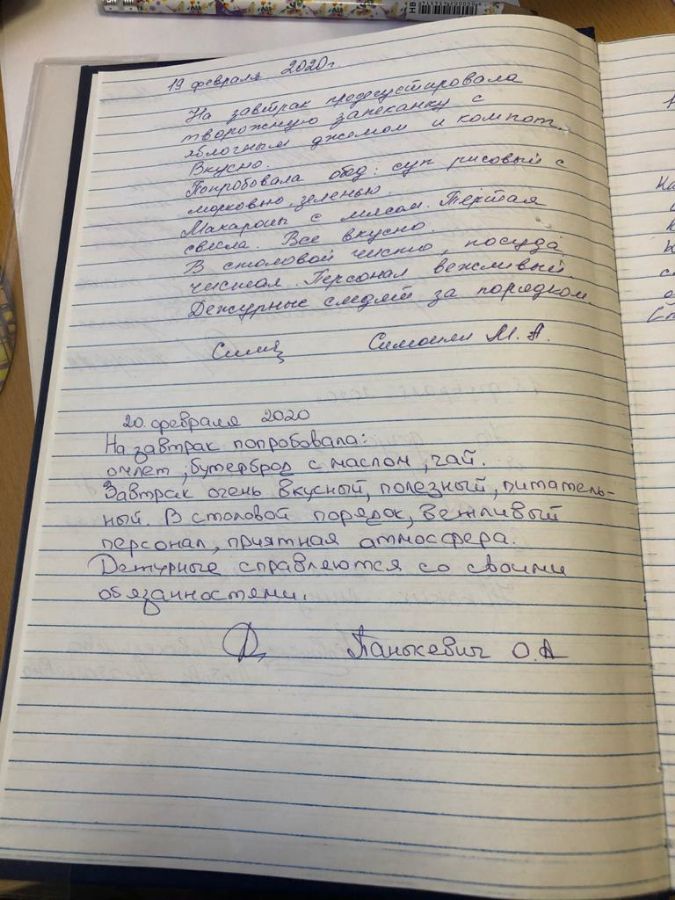 19 февраля 2020г.
На завтрак продегустировала
творожную запеканку с
яблочным джемом и компот.
Вкусно.
Попробовала обед: суп рисовый с
морковью, зеленью.
Макароны с мясом. Тёртая
свекла. Все вкусно.
В столовой чисто, посуда
чистая. Персонал вежливый
Дежурные следят за порядком.
М. А.
20. февраля 2020
На завтрак попробовала:
омлет, бутерброд с маслом, чай.
Завтрак очень вкусный, полезный, питатель-
ный. В столовой порядок, вежливый
персонал, приятная атмосфера.
Дежурные справляются со своими
обязанностями.
Панькевич О.А